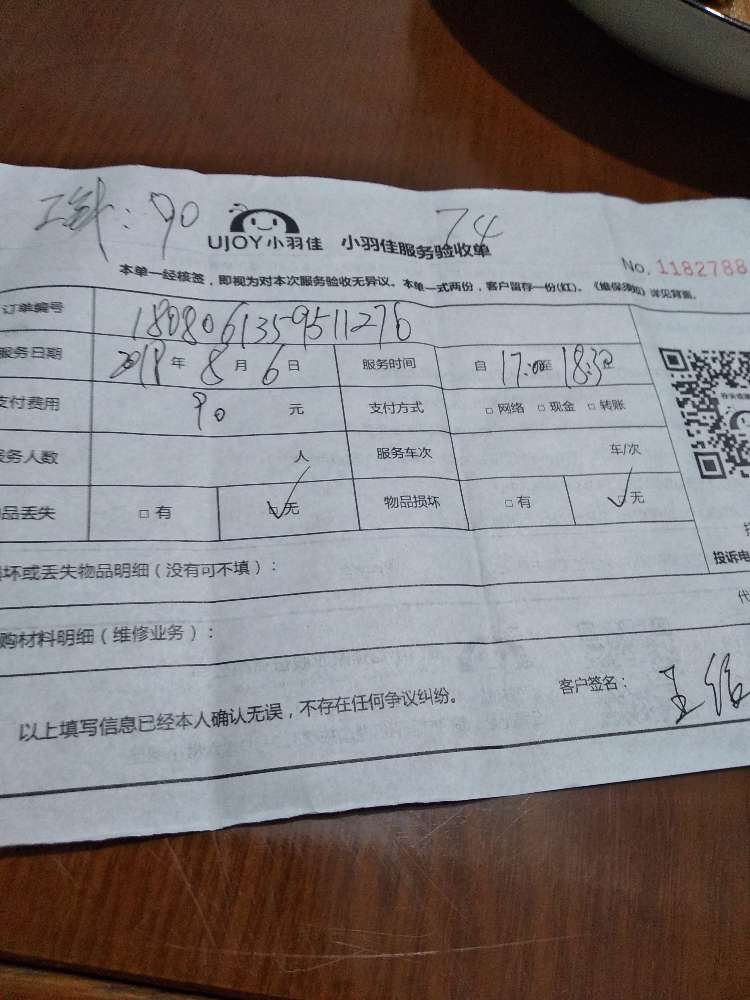 : 90
74
UJOY小羽佳 小羽佳服务验收单
No. 1182788
本单一经核签，即视为对本次服务验收无异议。本单一式两份，客户留存一份(红)。《维保须知》详见背面。
订单编号 1808061359511276
服务日期 2018 年 8 月 6 日 服务时间 自 17:00 至 18:30
支付费用 90 元 支付方式 □ 网络 □ 现金 □ 转账
务人数 人 服务车次 车/次
品丢失 □ 有 □ 无 物品损坏 □ 有 □ 无
坏或丢失物品明细（没有可不填）：
投诉电
购材料明细（维修业务）：
代
以上填写信息已经本人确认无误，不存在任何争议纠纷。 客户签名： 王